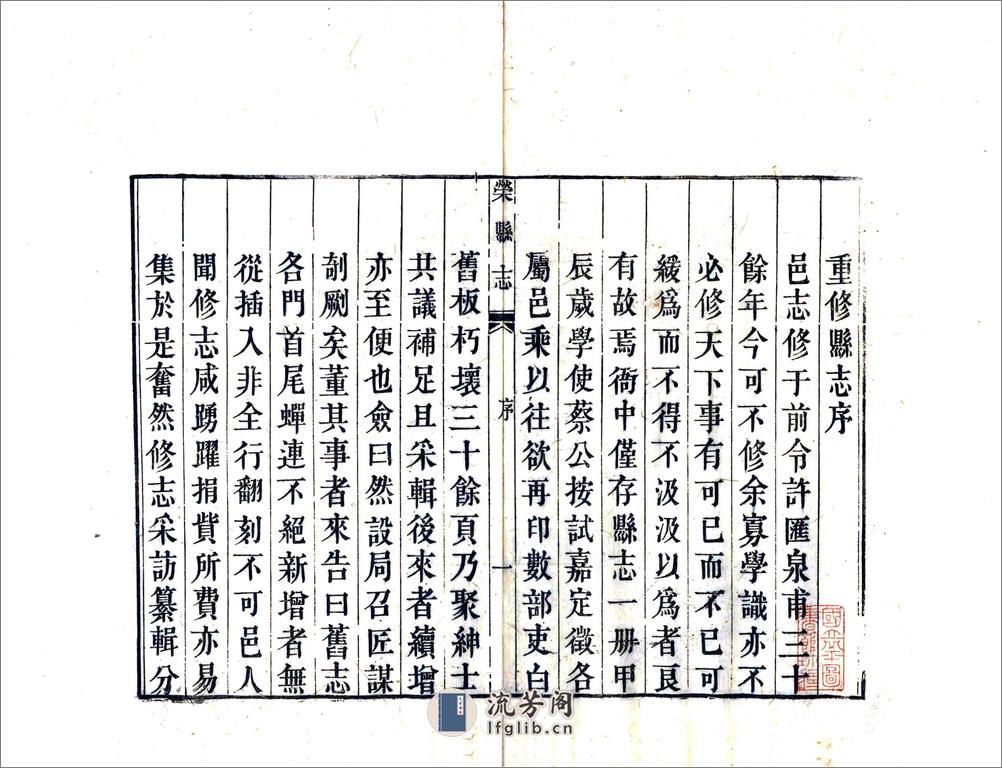 重修縣志序
邑志修于前令許匯泉甫三十
餘年今可不修余寡學識亦不
必修天下事有可已而不已可
緩爲而不得不汲汲以爲者良
有故焉衙中僅存縣志一册甲
辰歲學使蔡公按試嘉定徵各
屬邑乘以往欲再印數部吏白
榮縣志
序
一
舊板朽壞三十餘頁乃聚紳士
共議補足且采輯後來者續增
亦至便也僉曰然設局召匠謀
剞劂矣董其事者來告曰舊志
各門首尾蟬連不絕新增者無
從插入非全行翻刻不可邑人
聞修志咸踴躍捐貲所費亦易
集於是奮然修志采訪纂輯分
流芳阁
lfglib.cn